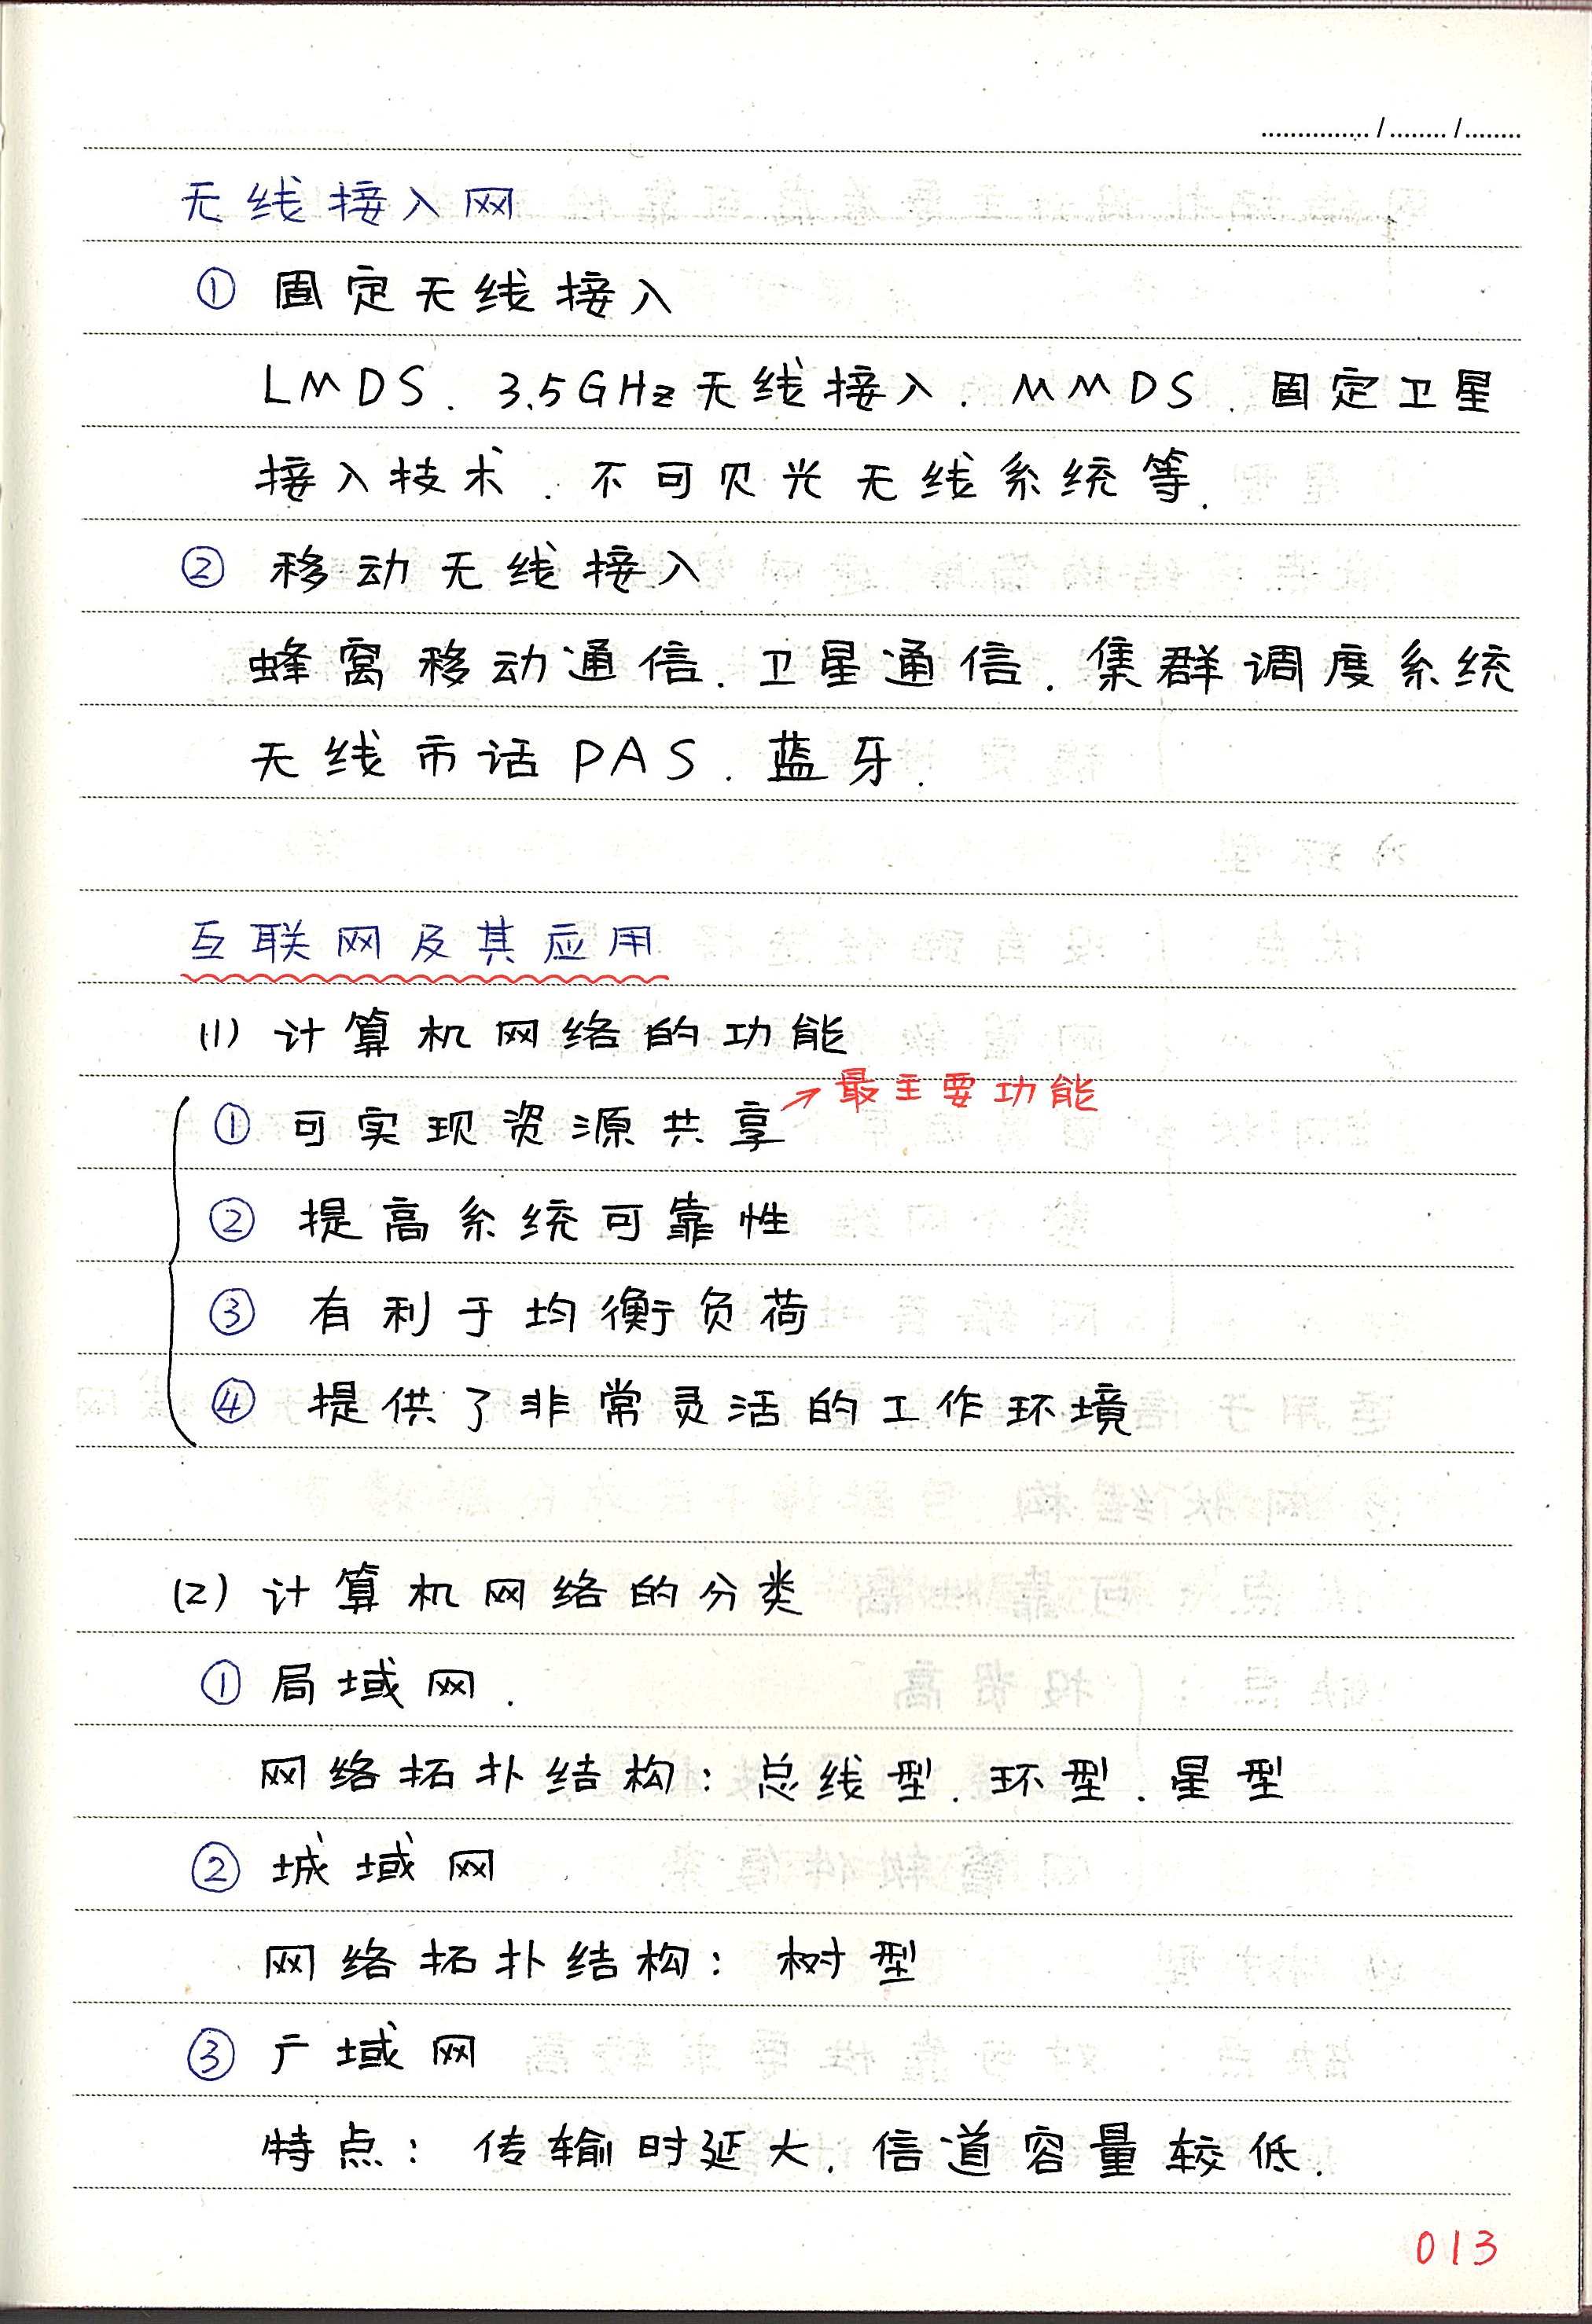 无线接入网
① 固定无线接入
LMDS、3.5GHz无线接入、MMDS、固定卫星
接入技术、不可见光无线系统等.
② 移动无线接入
蜂窝移动通信、卫星通信、集群调度系统
无线市话PAS、蓝牙.
互联网及其应用
(1) 计算机网络的功能
① 可实现资源共享 → 最主要功能
② 提高系统可靠性
③ 有利于均衡负荷
④ 提供了非常灵活的工作环境
(2) 计算机网络的分类
① 局域网.
网络拓扑结构: 总线型、环型、星型
② 城域网
网络拓扑结构: 树型
③ 广域网
特点: 传输时延大、信道容量较低.
013